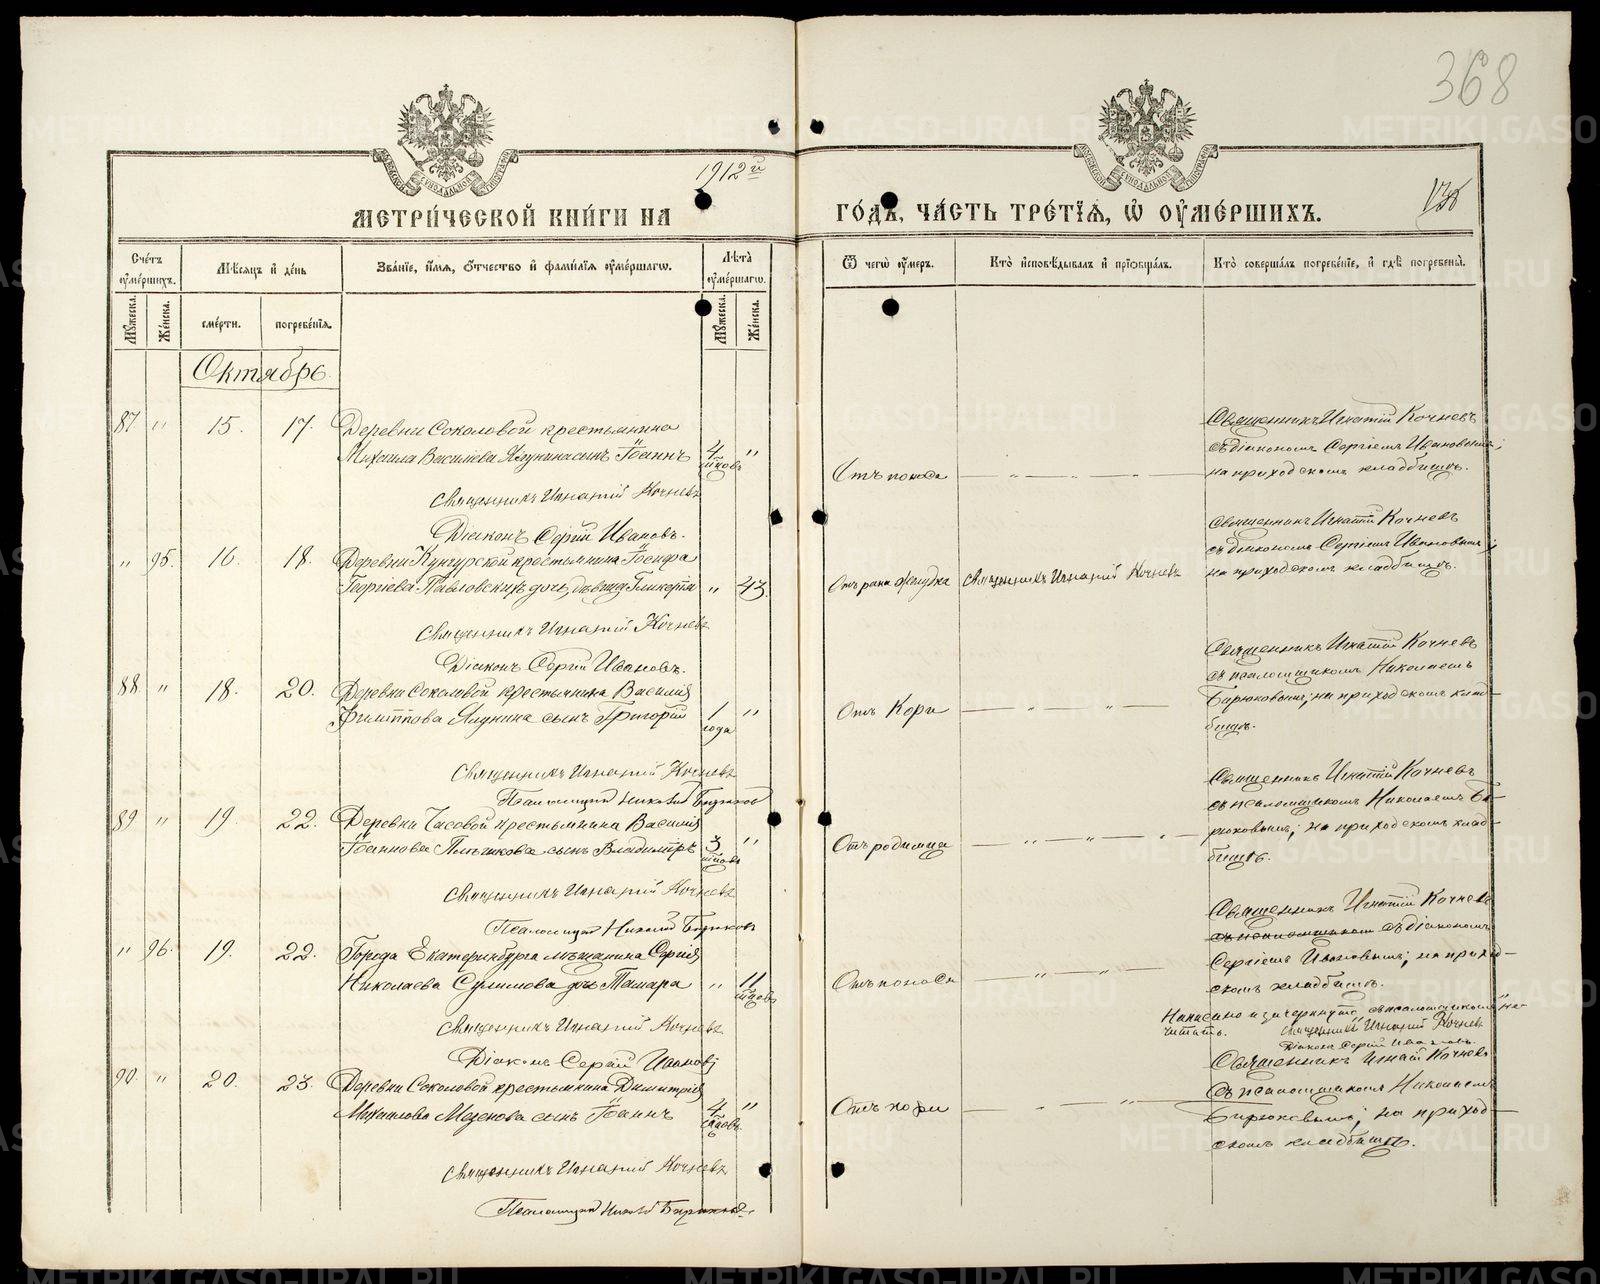 368
1912й
МЕТРИ́ЧЕСКОЙ КНИ́ГИ НА
ГО́ДЪ, ЧА́СТЬ ТРЕ́ТІѦ, Ѿ ОУМЕ́РШИХЪ.
Сче́тъ оуме́ршихъ.
Мѣсяцъ и де́нь
Зва́нїе, и́мѧ, ѻ́тчество и фами́лїѧ оуме́ршагѡ.
Лѣ́та оуме́ршагѡ.
Ѿ чегѡ̀ оу́меръ.
Кто̀ и҆сповѣ́дывалъ и҆ прїѡбща́лъ.
Кто̀ соверша́лъ погребе́нїе, и҆ гдѣ̀ погребены̀.
Мꙋ́жеска.
Же́нска.
сме́рти.
погребе́нїѧ.
Мꙋ́жеска.
Же́нска.
Октябрь.
87 " 15. 17. Деревни Соколовой крестьянина
Михаила Василіева Ялунина сынъ Іоаннъ 4 мѣсяцовъ "
Отъ поноса
Священникъ Игнатій Кочневъ
съ діакономъ Сергіемъ Ивановымъ;
на приходскомъ кладбищѣ.
Священникъ Игнатій Кочневъ
Діаконъ Сергій Ивановъ.
" 95. 16. 18. Деревни Кунгурской крестьянина Іосифа
Георгіева Павловскихъ дочь, дѣвица Гликерія " 43.
Отъ рака желудка
Священникъ Игнатій Кочневъ
Священникъ Игнатій Кочневъ
съ діакономъ Сергіемъ Ивановымъ;
на приходскомъ кладбищѣ.
Священникъ Игнатій Кочневъ
Діаконъ Сергій Ивановъ.
88. " 18. 20. Деревни Соколовой крестьянина Василія
Филиппова Ялунина сынъ Григорій 1 года "
Отъ Кори
Священникъ Игнатій Кочневъ
съ псаломщикомъ Николаемъ
Бирюковымъ; на приходскомъ клад-
бищѣ.
Священникъ Игнатій Кочневъ
Псаломщикъ Николай Бирюковъ
89 " 19. 22. Деревни Часовой крестьянина Василія
Іоаннова сынъ Владиміръ 3 мѣсяцовъ "
Отъ родимца
Священникъ Игнатій Кочневъ
съ псаломщикомъ Николаемъ Би-
рюковымъ; на приходскомъ клад-
бищѣ.
Священникъ Игнатій Кочневъ
Псаломщикъ Николай Бирюковъ
" 96. 19. 22. Города Екатеринбурга мѣщанина Сергія
Николаева Сулимова дочь Тамара " 11 мѣсяцовъ
Отъ поноса
Священникъ Игнатій Кочневъ
съ псаломщикомъ съ діакономъ
Сергіемъ Ивановымъ; на приход-
скомъ кладбищѣ.
Написано и зачеркнуто "съ псаломщикомъ" не
читать. Священникъ Игнатій Кочневъ
Діаконъ Сергій Ивановъ.
Священникъ Игнатій Кочневъ
Діаконъ Сергій Ивановъ
90. " 20. 23. Деревни Соколовой крестьянина Димитрія
Михаилова Мезенова сынъ Іоаннъ 4 мѣсяцовъ. "
Отъ кори
Священникъ Игнатій Кочневъ
съ псаломщикомъ Николаемъ
Бирюковымъ; на приход-
скомъ кладбищѣ.
Священникъ Игнатій Кочневъ
Псаломщикъ Николай Бирюковъ.
METRIKI.GASO-URAL.RU